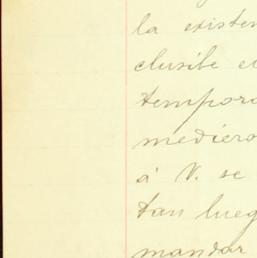 la existen
clusibe e
tempora
mediero
á V. se
tan lueg
mandar